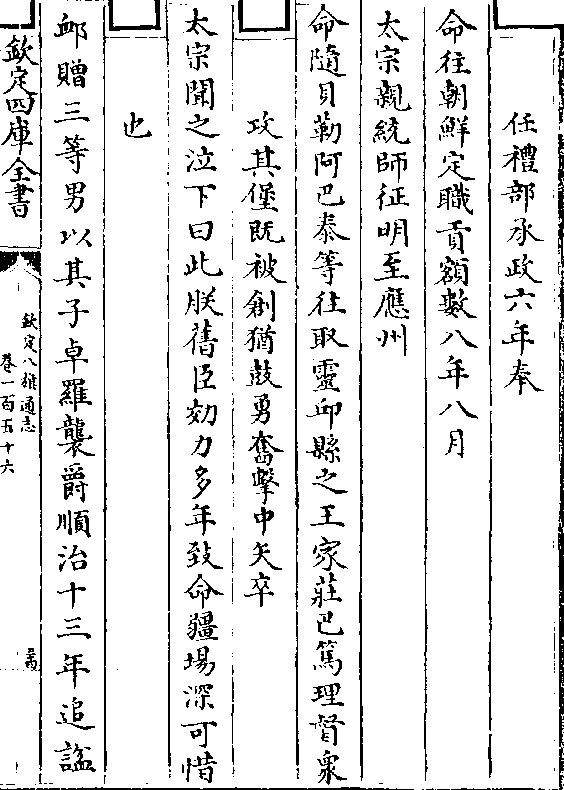 任禮部承政六年奉
命往朝鮮定職貢額數八年八月
太宗親統師征明至應州
命隨貝勒阿巴泰等往取靈邱縣之王家莊巴篤理督衆
攻其堡既被創猶鼓勇奮擊中矢卒
太宗聞之泣下曰此朕舊臣効力多年致命疆場深可惜
也
卹贈三等男以其子卓羅襲爵順治十三年追諡
欽定四庫全書
欽定八旗通志
卷一百五十六